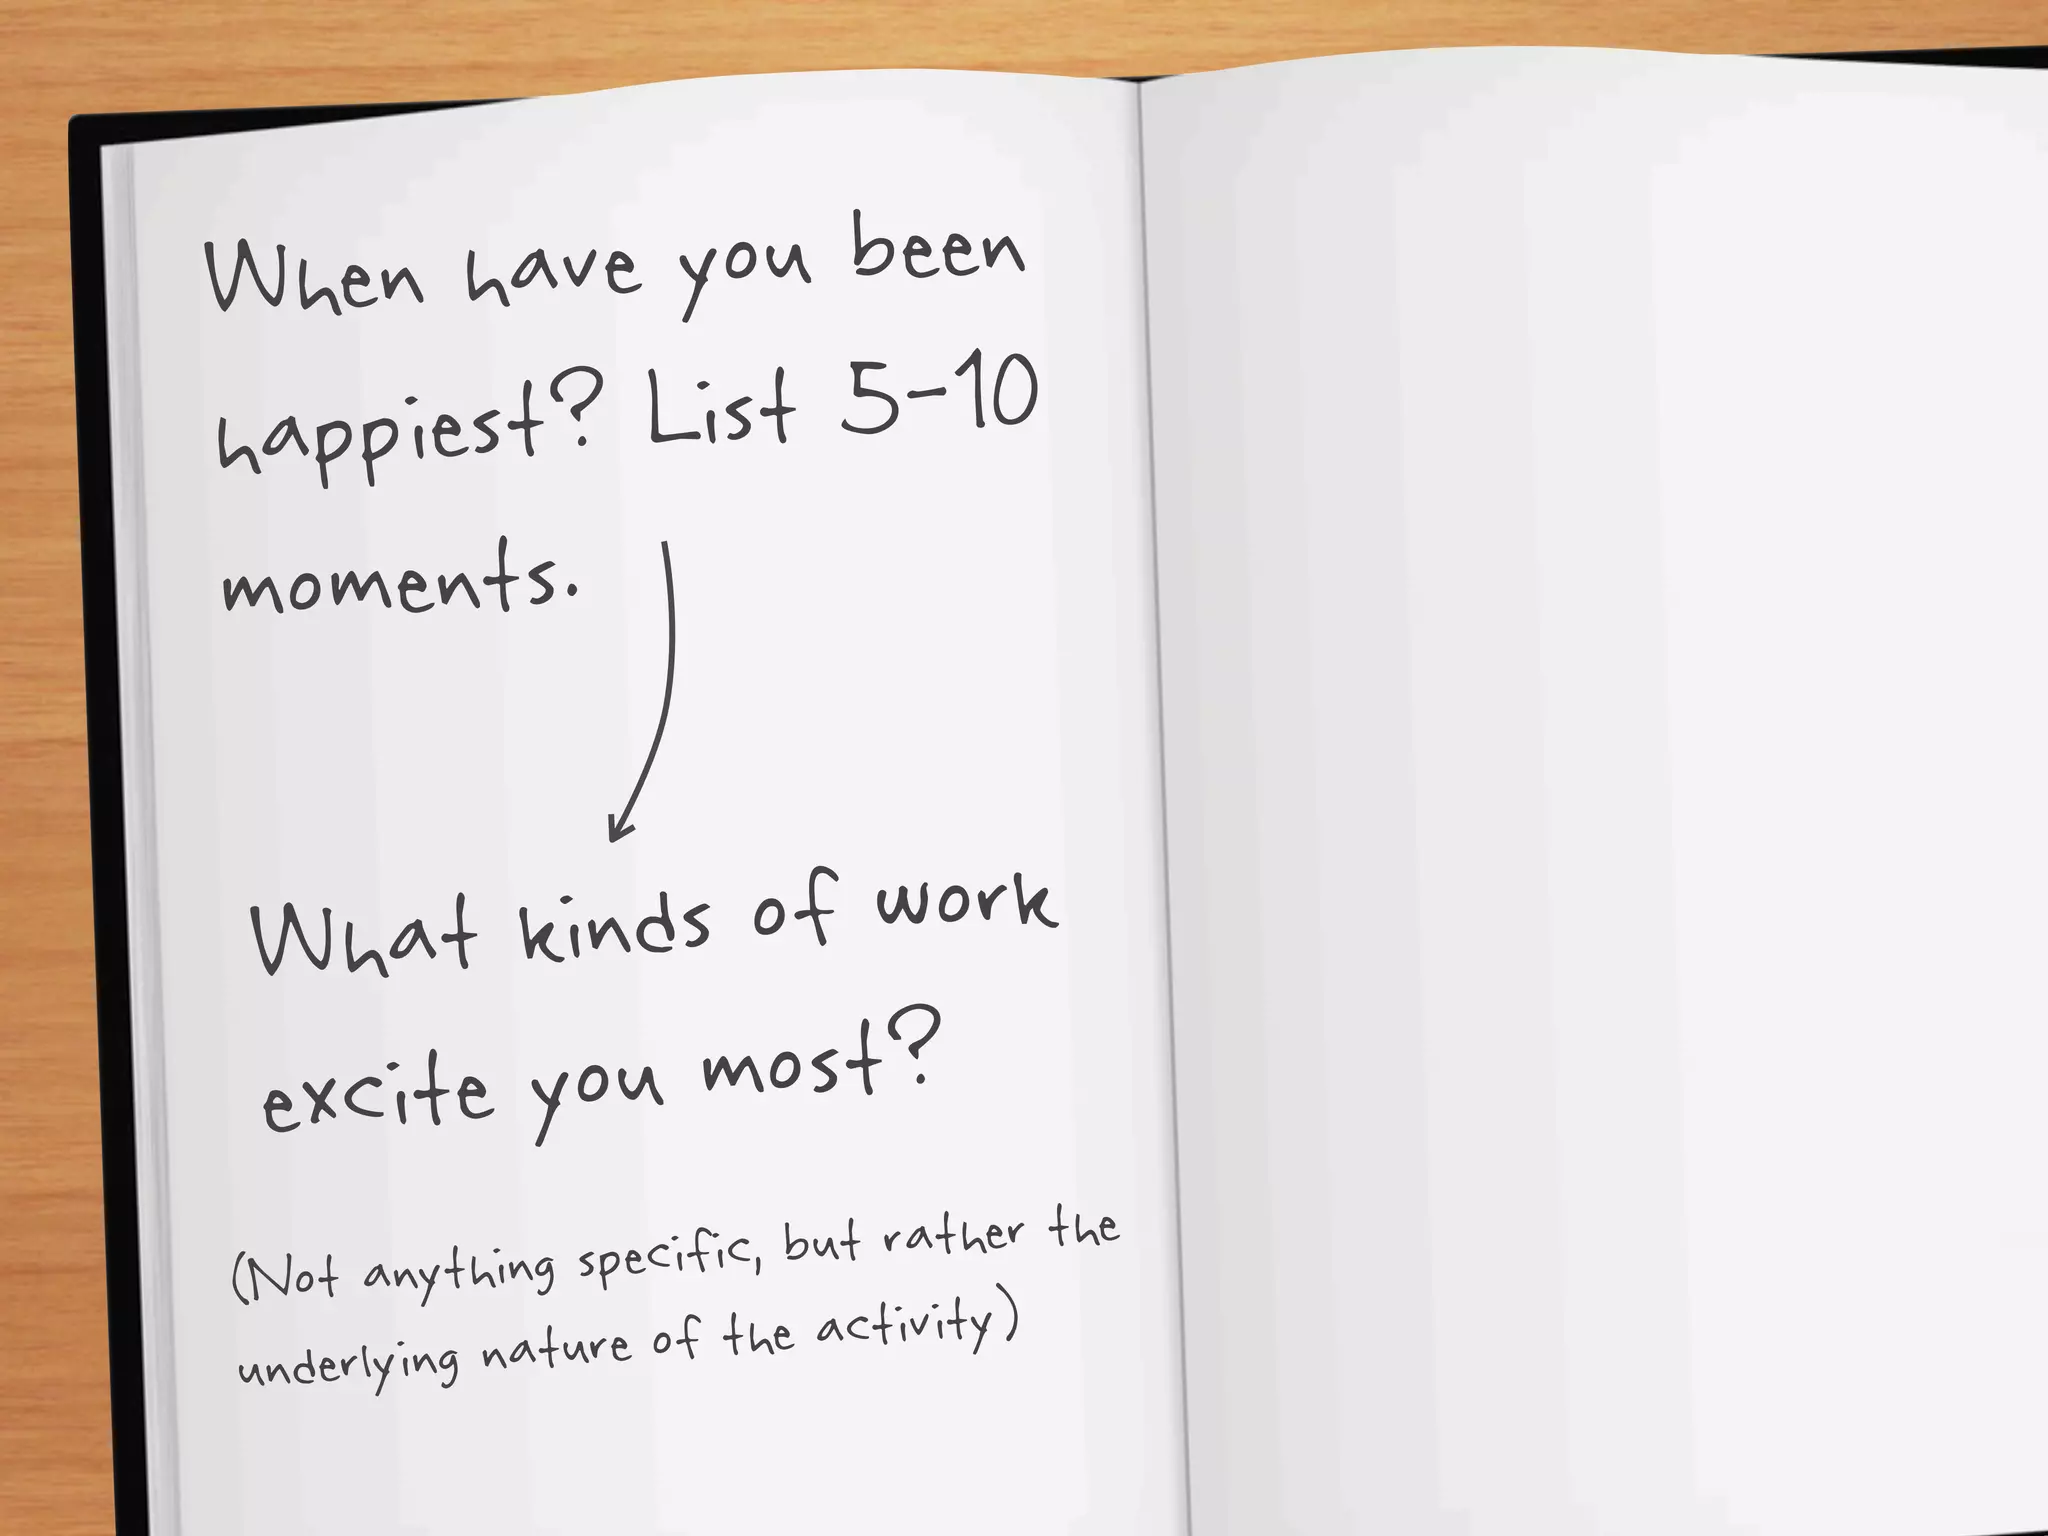 When have you been
happiest? List 5-10
moments.
What kinds of work
excite you most?
(Not anything specific, but rather the
underlying nature of the activity)